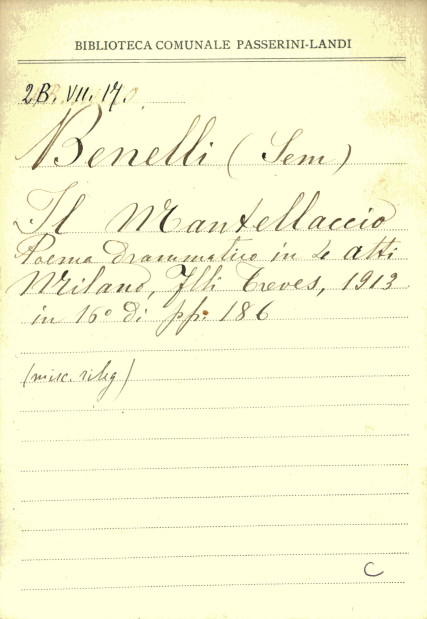 BIBLIOTECA COMUNALE PASSERINI-LANDI
2B. VII. 17.
Benelli (Sem)
Il Mantellaccio
Poema drammatico in 4 atti
Milano, Flli Treves, 1913
in 16º di pp. 186
(misc. rileg)
C